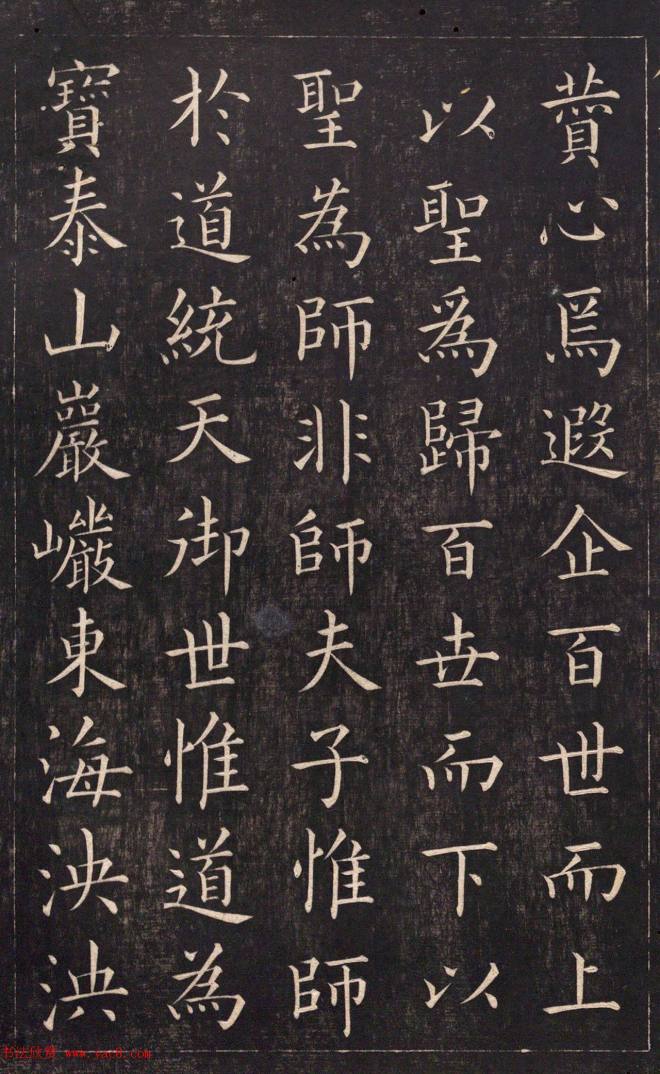 蕡心焉遐企百世而上
以聖爲歸百世而下以
聖為師非師夫子惟師
於道統天御世惟道為
寶泰山巖巖東海泱泱
书法欣赏 www.yac8.com